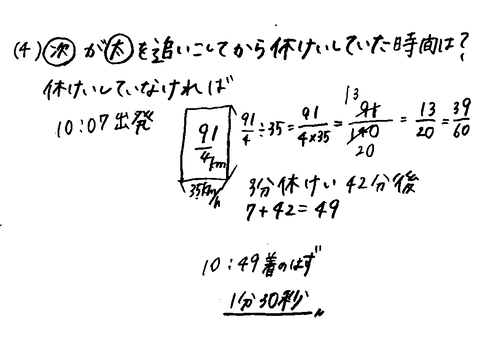 (4) 次 が 太 を追いこしてから休けいしていた時間は?
休けいしていなければ
10:07出発
91/4 km
35km/h
91/4 ÷ 35 = 91/4×35 = 13 91/140 20 = 13/20 = 39/60
3分休けい 42分後
7+42=49
10:49着のはず
1分30秒